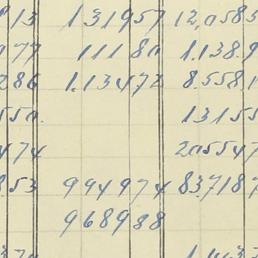 913 131957 12,0583
977 11180 1.138.9
286 1.13472 8.5581
550. 13155
474 205547
853 994974 837187
968988